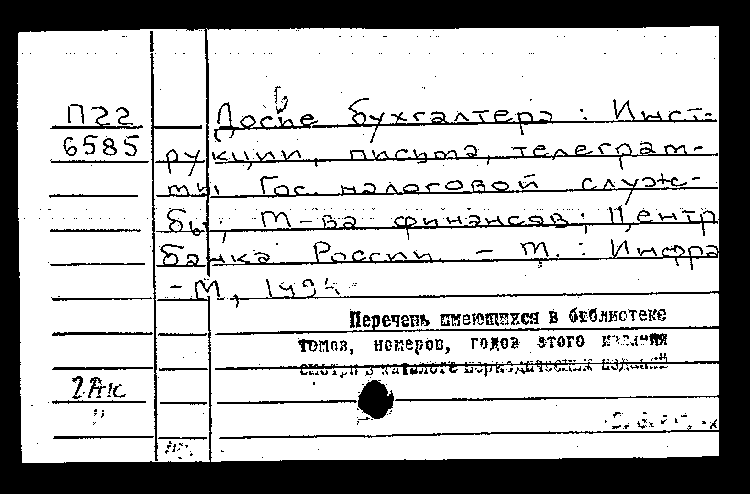 П22 Досье бухгалтера : Инст-
6585 рукции, письма, телеграм-
мы Гос. налоговой служ-
бы, М-ва финансов; Центр
банка России. – М. : Инфра
-М, 1994-
Перечень имеющихся в библиотеке
томов, номеров, годов этого издания
смотри в каталоге периодических изданий
2Ак